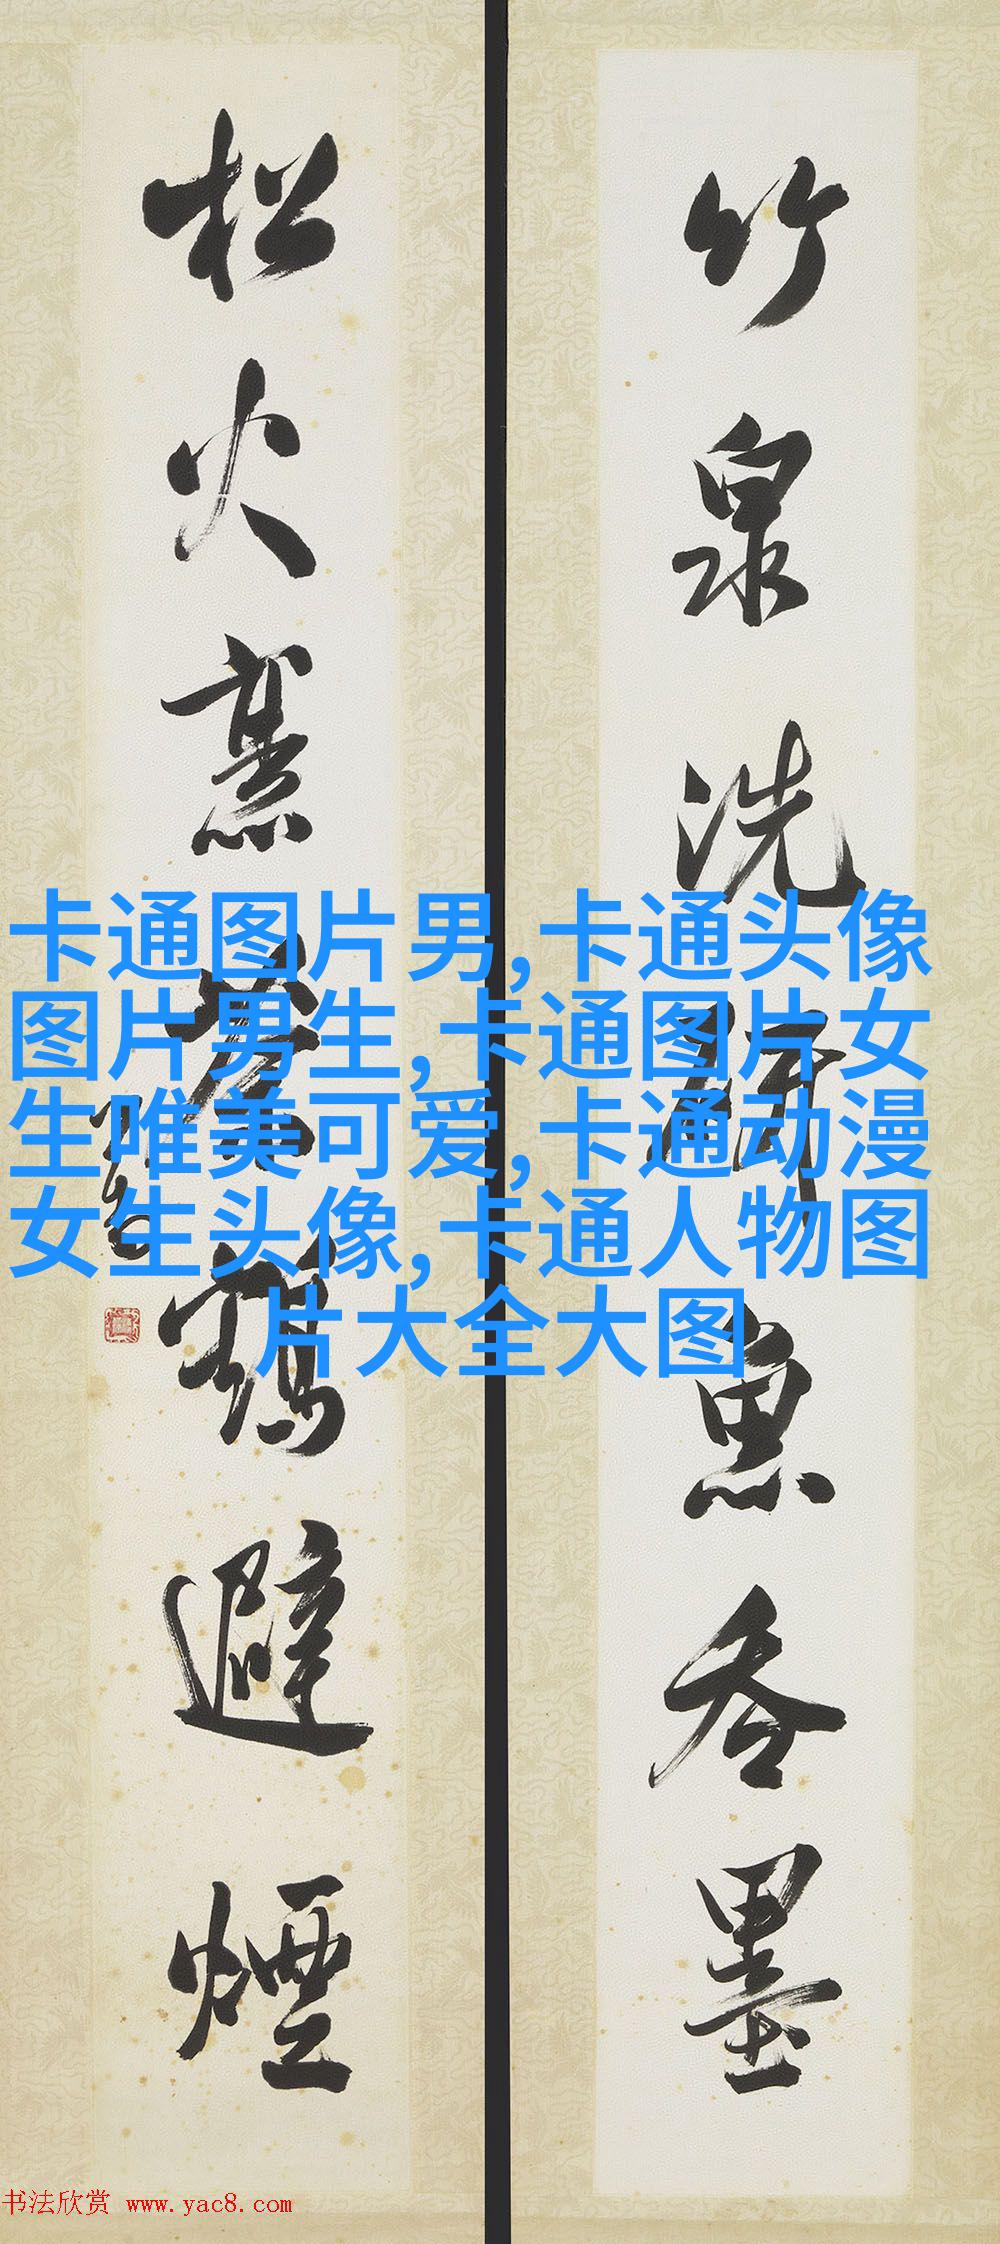 竹泉洗魚吞墨
松火茶鶴避煙
卡通图片男,卡通头像
图片男生,卡通图片女
生唯美可爱,卡通动漫
女生头像,卡通人物图
片大全大图
书法欣赏 www.yac8.com